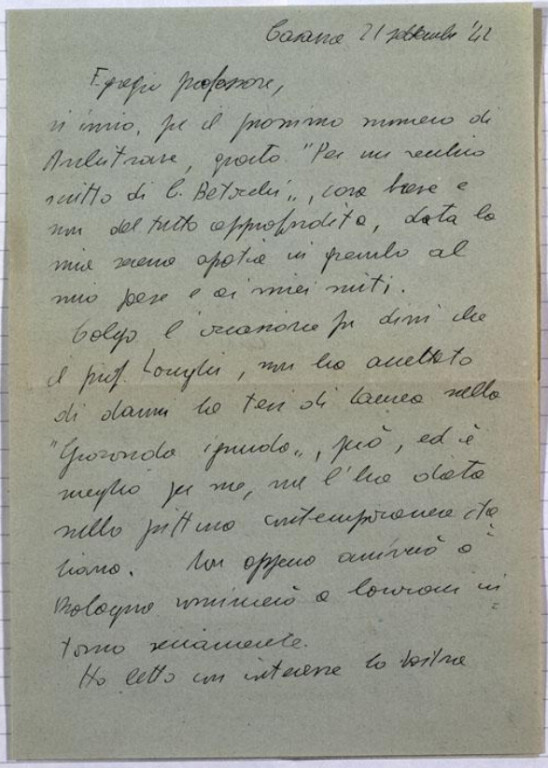 Casarsa 21 settembre '42
Egregio professore,
vi invio, per il prossimo numero di
Architrave, questo "Per un vecchio
scritto di C. Betocchi", cosa breve e
non del tutto approfondita, data la
mia serena apatia in grembo al
mio paese e ai miei miti.
Colgo l'occasione per dirvi che
il prof. Longhi, non ha accettato
di darmi la tesi di laurea nella
"Gioconda ignuda", però, ed è
meglio per me, me l'ha data
nella pittura contemporanea ita
liana. Non appena arriverò a
Bologna comincerò a lavorarci in
torno seriamente.
Ho letto con interesse la vostra